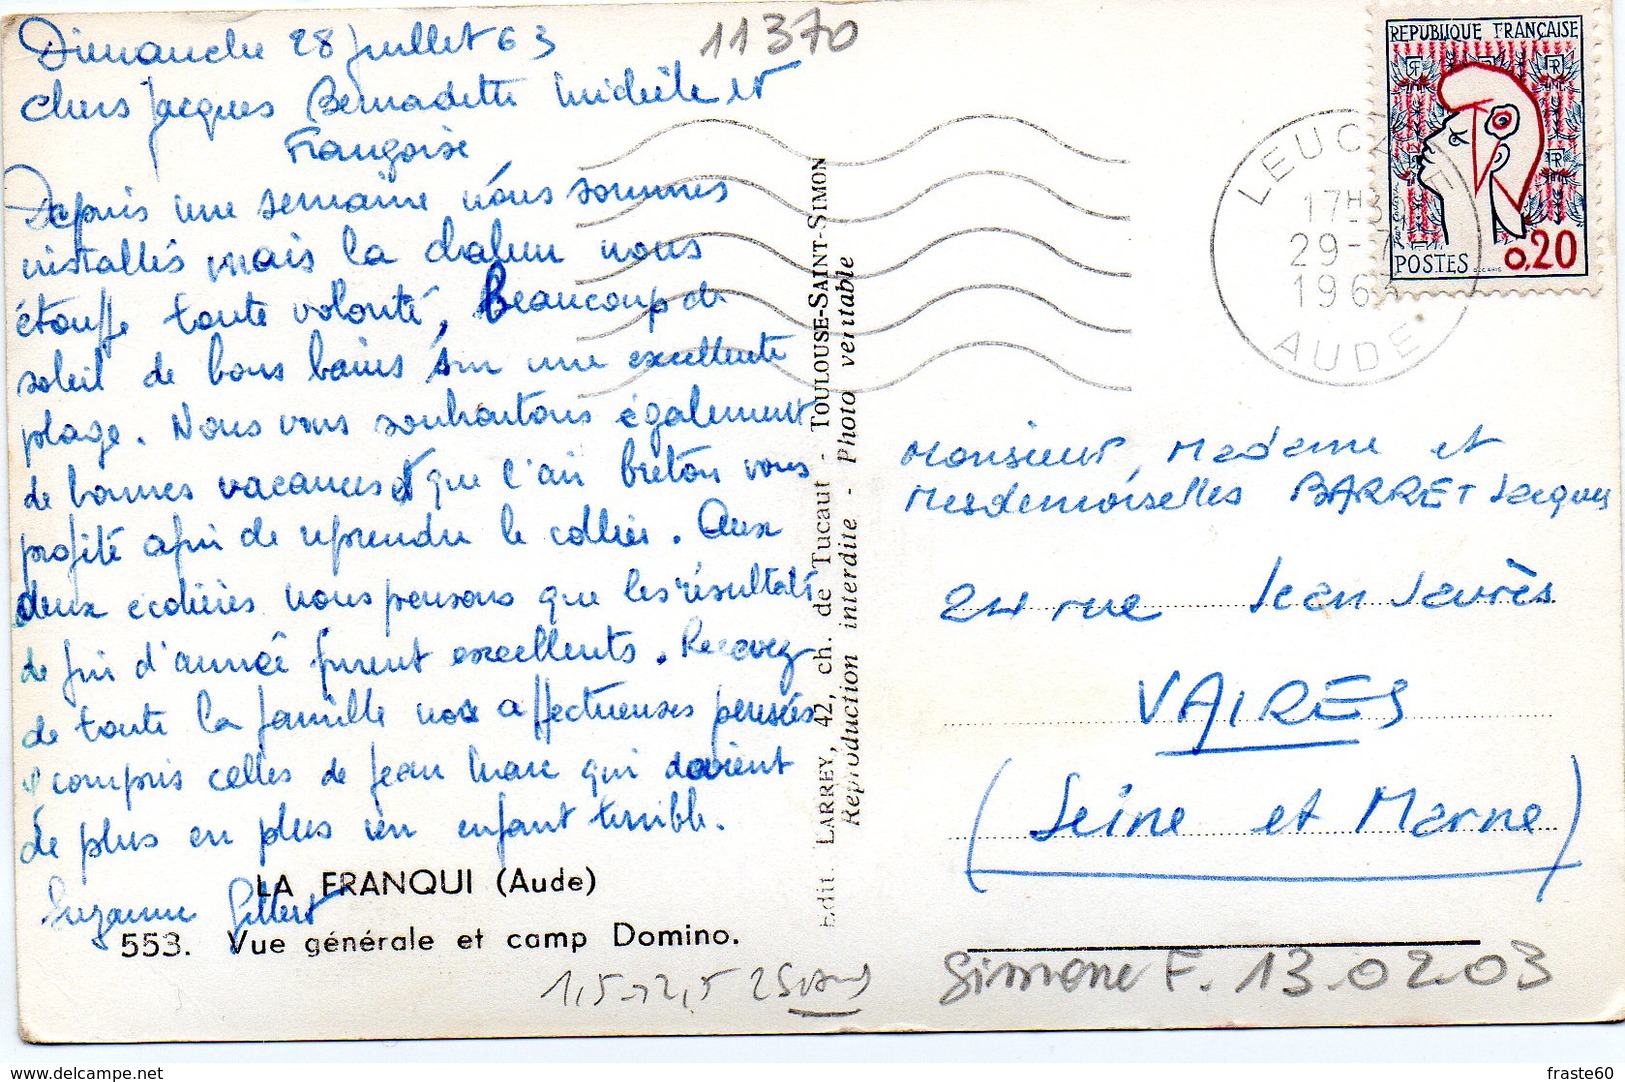 11370
Dimanche 28 Juillet 63
Chers Jacques Bernadette Michèle et
Françoise
Depuis une semaine nous sommes
installés mais la chaleur nous
étouffe toute volonté, Beaucoup de
soleil de bons bains sur une excellente
plage. Nous vous souhaitons également
de bonnes vacances et que l'air breton vous
profite afin de reprendre le collier. Aux
deux écolières nous pensons que les résultats
de fin d'année furent excellents. Recevez
de toute la famille nos affectueuses pensées
y compris celles de Jean Marc qui devient
de plus en plus un enfant terrible.
Suzanne Gilbert
LA FRANQUI (Aude)
553. Vue générale et camp Domino.
Edit. LARREY, 42, ch. de Tucaut - TOULOUSE-SAINT-SIMON
Reproduction interdite - Photo véritable
REPUBLIQUE FRANÇAISE
POSTES 0,20
DECARIS
LEUCATE
17H3
29-7
1963
AUDE
Monsieur, Madame et
Mesdemoiselles BARRET Jacques
24 rue Jean Jaurès
VAIRES
(Seine et Marne)
1,5 → 2,5
Simone F. 13.02.03
www.delcampe.net
fraste60